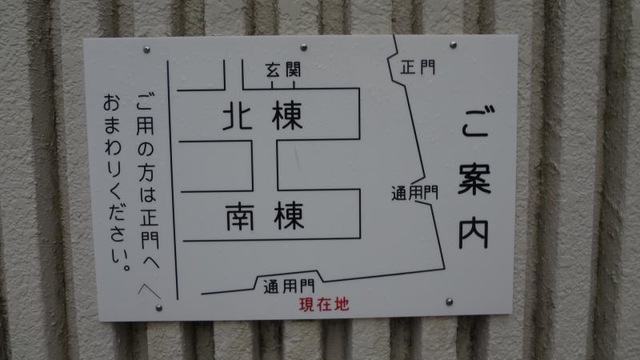 ご案内
正門
玄関
北棟
通用門
南棟
通用門
現在地
ご用の方は正門へ
おまわりください。